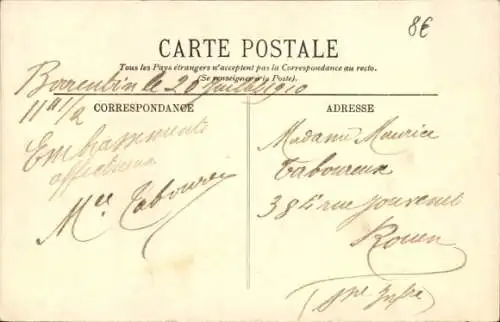 8€
CARTE POSTALE
Tous les Pays étrangers n'acceptent pas la Correspondance au recto.
(Se renseigner à la Poste).
Borrentin le 20 Juillet 1910
11h 1/2
CORRESPONDANCE
Embrassements
affectueux
Mce Taboureux
ADRESSE
Madame Maurice
Taboureux
38 rue Jouvenet
Rouen
Sne Infre